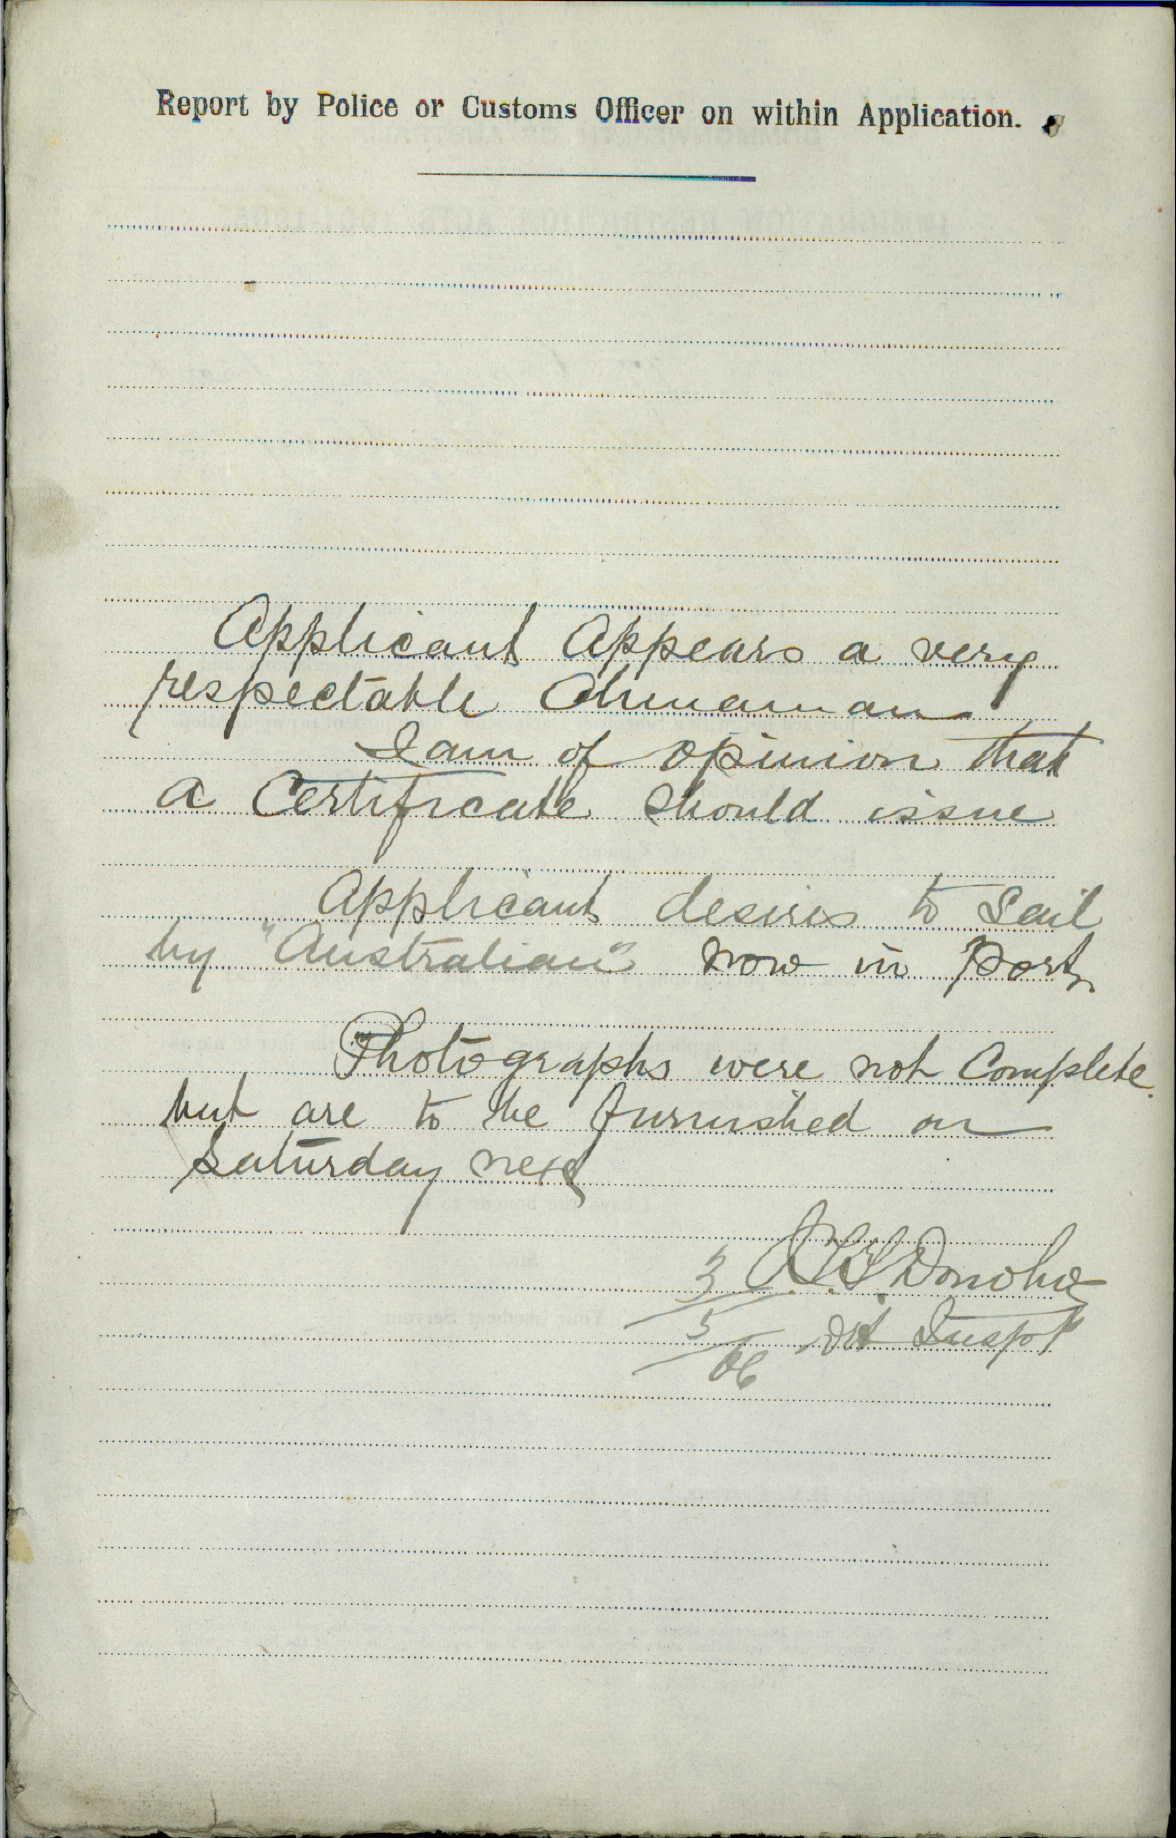 Report by Police or Customs Officer on within Application.
Applicant Appears a very
respectable Chinaman
I am of opinion that
a Certificate should issue
Applicant desires to Sail
by "Australian" now in Port
Photographs were not Complete
but are to be furnished on
Saturday next
3 Donohoe
5 Det Inspr
06